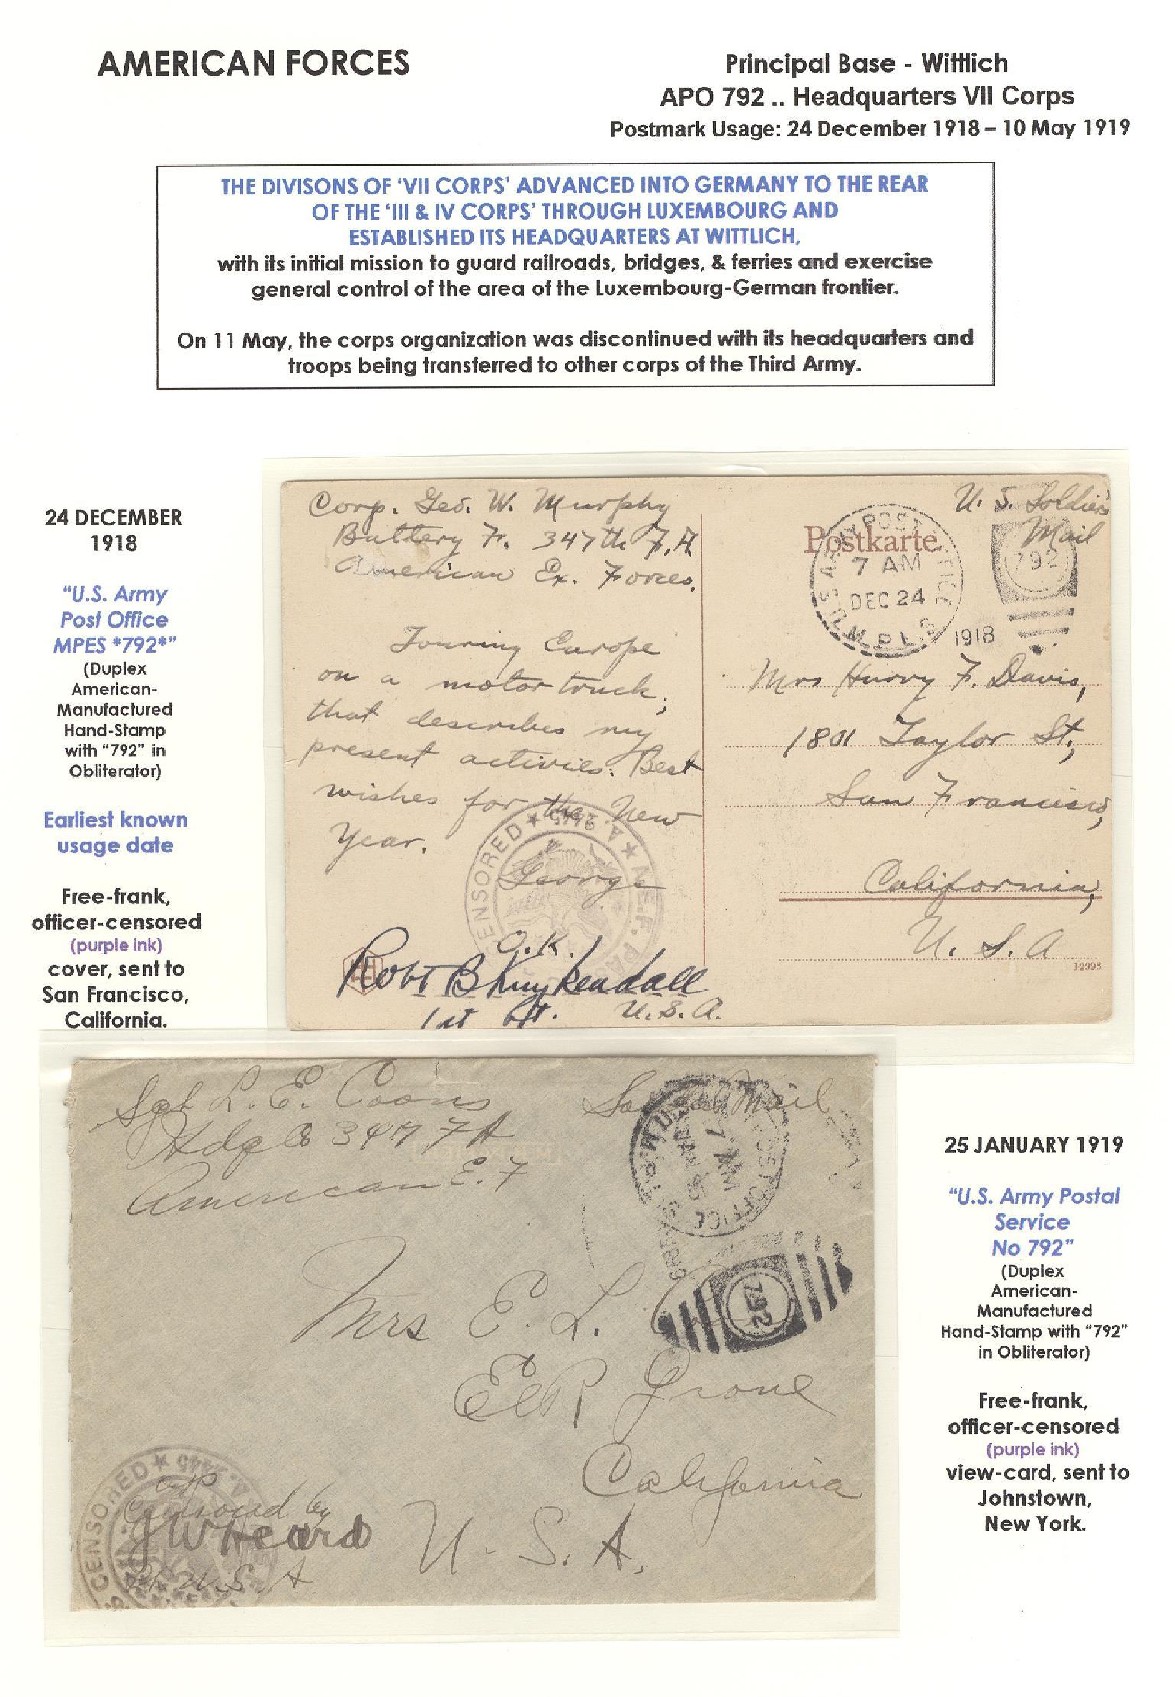 AMERICAN FORCES
Principal Base - Wittlich
APO 792 .. Headquarters VII Corps
Postmark Usage: 24 December 1918 – 10 May 1919
THE DIVISONS OF ‘VII CORPS’ ADVANCED INTO GERMANY TO THE REAR
OF THE ‘III & IV CORPS’ THROUGH LUXEMBOURG AND
ESTABLISHED ITS HEADQUARTERS AT WITTLICH,
with its initial mission to guard railroads, bridges, & ferries and exercise
general control of the area of the Luxembourg-German frontier.
On 11 May, the corps organization was discontinued with its headquarters and
troops being transferred to other corps of the Third Army.
24 DECEMBER
1918
“U.S. Army
Post Office
MPES *792*”
(Duplex
American-
Manufactured
Hand-Stamp
with “792” in
Obliterator)
Earliest known
usage date
Free-frank,
officer-censored
(purple ink)
cover, sent to
San Francisco,
California.
Corp. Geo. W. Murphy
Battery F. 347th F.A.
American Ex. Forces.
Touring Europe
on a motor truck;
that describes my
present activies. Best
wishes for the New
Year.
George
O.K.
Robt B Kuykendall
1st Lt. U.S.A.
CENSORED
A.E.F.
Postkarte
U. S. Soldier's
Mail
U.S. ARMY POST OFFICE
7 AM
DEC 24
1918
M.P.E.S.
792
Mrs Harry F. Davis,
1801 Taylor St.,
San Francisco,
California,
U. S. A
Sgt L. E. Coons
Hdq Co 347 FA
American E. F
Mail
POST OFFICE
7 AM
JAN 25
792
Mrs E. L.
Elk Grove
California
U. S. A.
CENSORED
OK
Censored by
J W Heard
U.S.A
25 JANUARY 1919
“U.S. Army Postal
Service
No 792”
(Duplex
American-
Manufactured
Hand-Stamp with “792”
in Obliterator)
Free-frank,
officer-censored
(purple ink)
view-card, sent to
Johnstown,
New York.